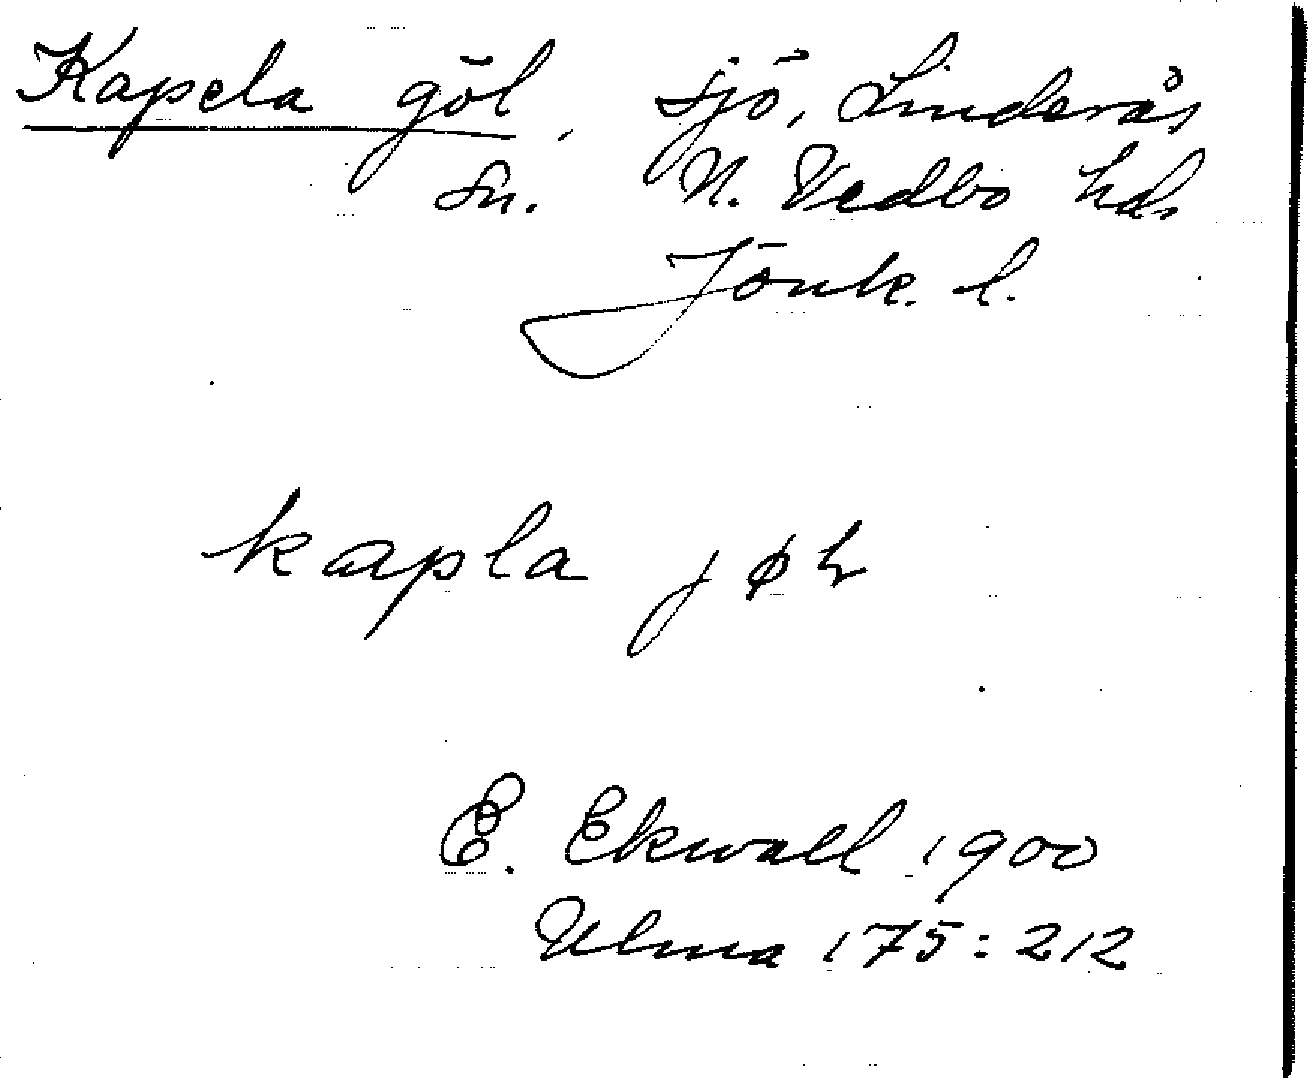 Kapela göl, sjö, Linderås
sn. N. Vedbo hd,
Jönk. l.
kapla jøɫ
E. Ekwall 1900
Ulma 175:212